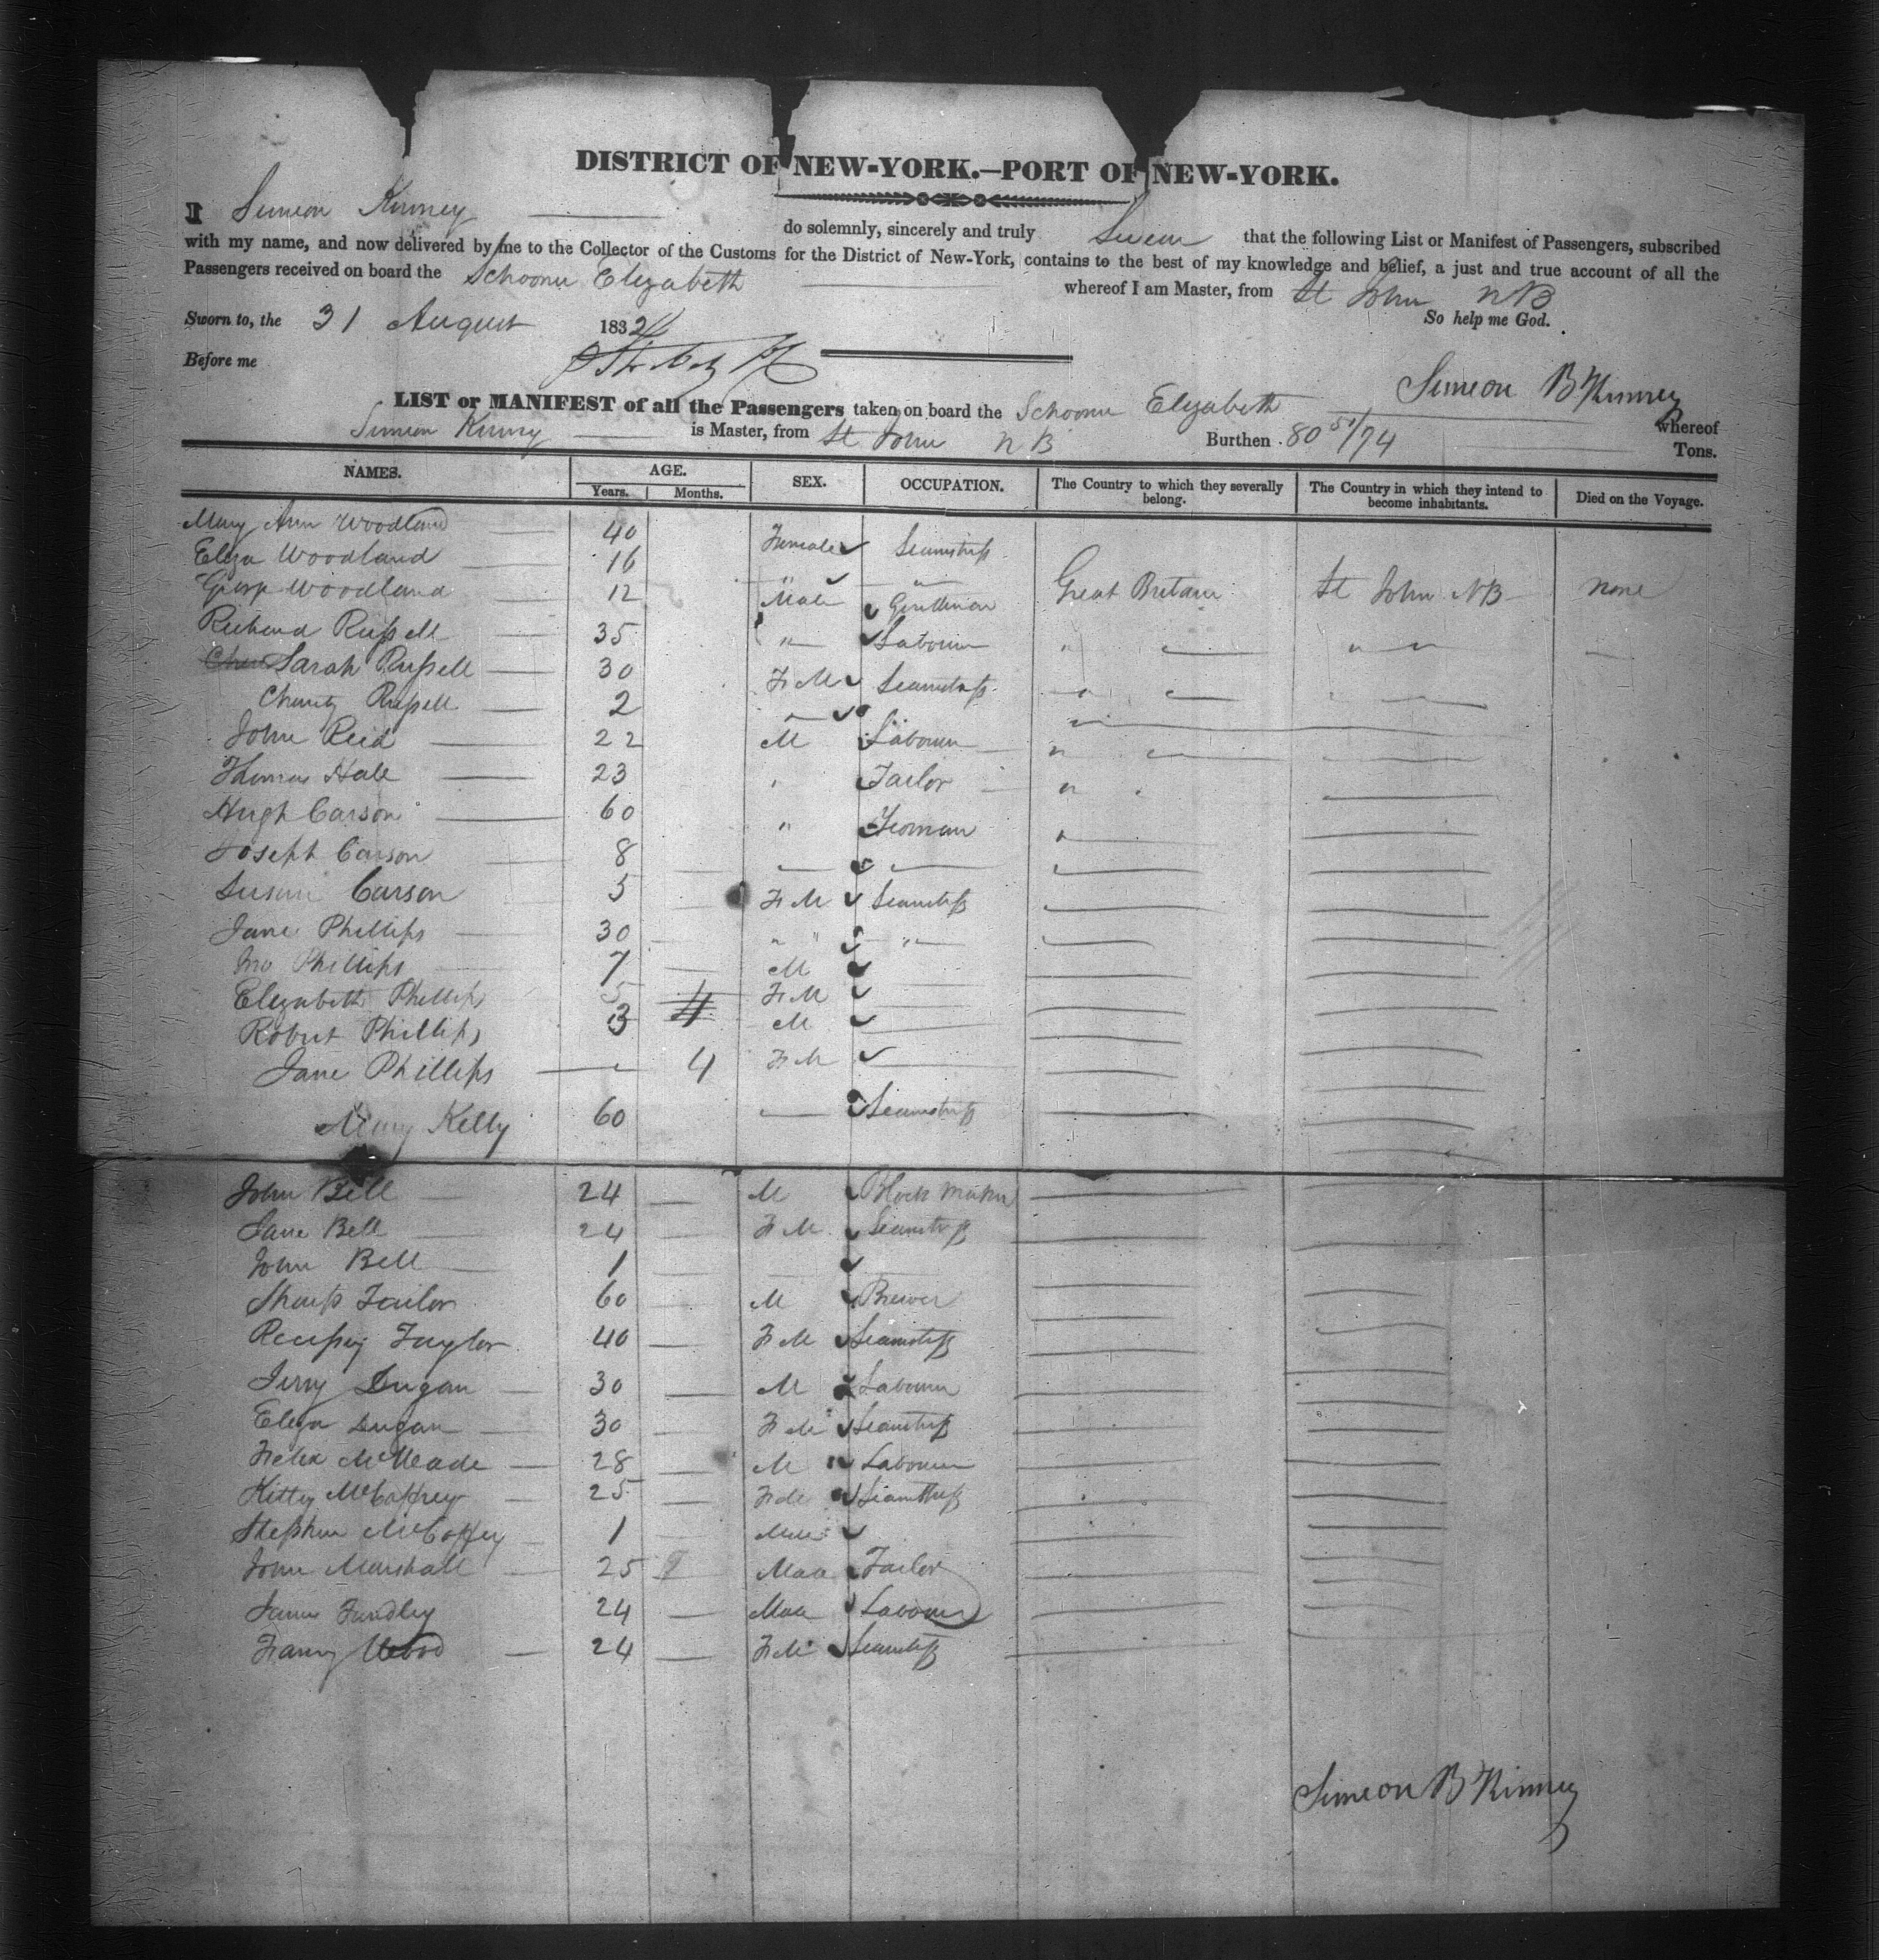 DISTRICT OF NEW-YORK.—PORT OF NEW-YORK.
I Simeon Kinney do solemnly, sincerely and truly Swear that the following List or Manifest of Passengers, subscribed
with my name, and now delivered by me to the Collector of the Customs for the District of New-York, contains to the best of my knowledge and belief, a just and true account of all the
Passengers received on board the Schooner Elizabeth whereof I am Master, from St John NB
Sworn to, the 31 August 183 So help me God.
Before me
Simeon B Kinney
LIST or MANIFEST of all the Passengers taken on board the Schooner Elizabeth whereof
Simeon Kinney is Master, from St John NB Burthen 80 51/94 Tons.
NAMES. AGE. Years. Months. SEX. OCCUPATION. The Country to which they severally belong. The Country in which they intend to become inhabitants. Died on the Voyage.
Mary Ann Woodland 40 Female Seamstress
Eliza Woodland 16 " "
George Woodland 12 Male Gentleman Great Britain St John NB none
Richard Russell 35 " Labourer " " "
Sarah Russell 30 Fe M Seamstress "
Charity Russell 2
John Reid 22 M Labourer "
Thomas Hale 23 " Tailor "
Hugh Carson 60 " Yeoman "
Joseph Carson 8
Susan Carson 5 Fe M Seamstress
Jane Phillips 30 " " "
Jno Phillips 7 M
Elizabeth Phillips 5 Fe M
Robert Phillips 3 M
Jane Phillips 4 Fe M
Mary Kelly 60 Seamstress
John Bell 24 M Block maker
Jane Bell 24 Fe M Seamstress
John Bell 1
Sharp Tailor 60 M Brewer
Taylor 40 Fe M Seamstress
Jerry Dugan 30 M Labourer
Eliza Dugan 30 Fe M Seamstress
Felix McMeade 28 M Labourer
Kitty McCaffrey 25 Fe M Seamstress
Stephen McCaffrey 1 Male
John Marshall 25 Male Tailor
James Fundley 24 Male Labourer
Fanny Wood 24 Fe M Seamstress
Simeon B Kinney